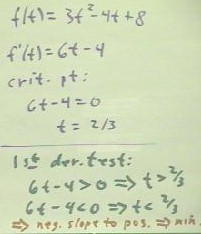 f(t) = 3t²-4t+8
f'(t) = 6t-4
crit. pt:
6t-4=0
t = 2/3
1st der. test:
6t-4>0 => t>2/3
6t-4<0 => t< 2/3
=> neg. slope to pos. => min.